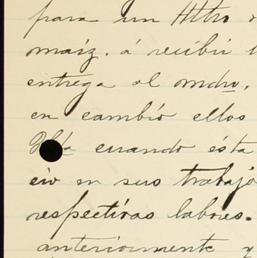 para un Httro
maiz. á recibir
entrega al mdro.
en cambió ellos
cuando ésta
eio en sus trabajo
respectivas labores.
anteriormente y